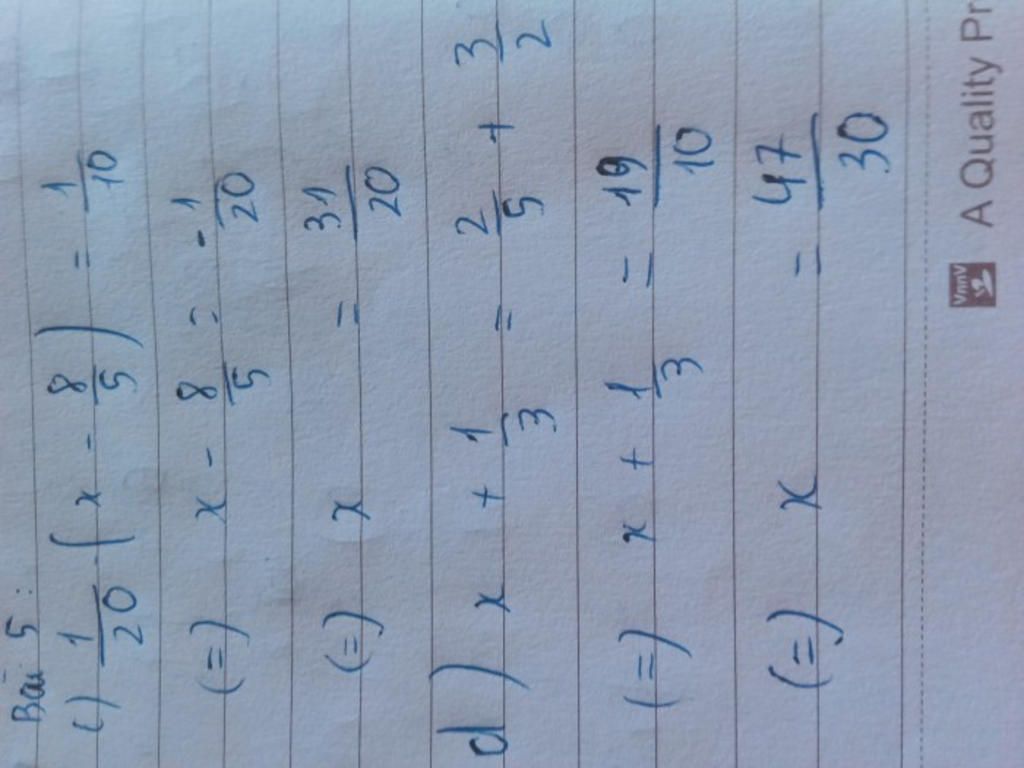 Bài 5 :
c) 1/20 - ( x - 8/5 ) = 1/10
(=) x - 8/5 = -1/20
(=) x = 31/20
d) x + 1/3 = 2/5 + 3/2
(=) x + 1/3 = 19/10
(=) x = 47/30
A Quality Pr